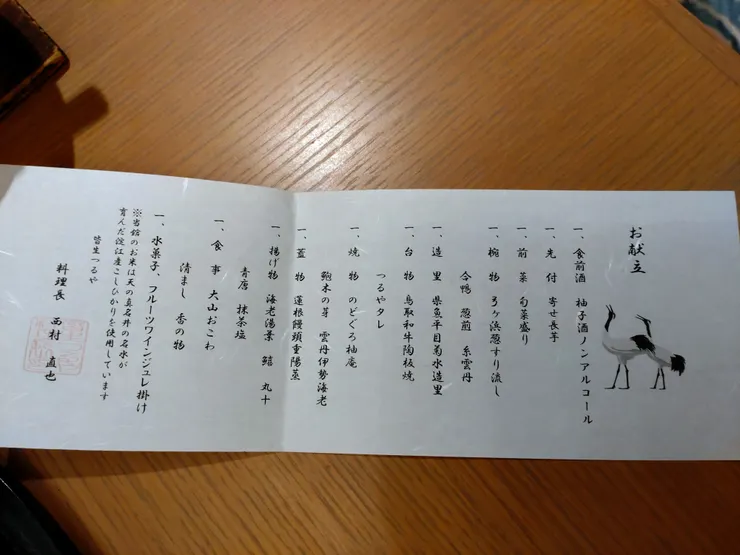 お献立
一、食前酒 柚子酒ノンアルコール
一、先付 寄せ長芋
一、前菜 旬菜盛り
一、椀物 弓ヶ浜葱すり流し
合鴨 葱煎 糸雲丹
一、造里 県魚平目菊水造里
一、台物 鳥取和牛陶板焼
つるやタレ
一、焼物 のどぐろ柚庵
鮑木の芽 雲丹伊勢海老
一、蓋物 蓮根饅頭重陽蒸
一、揚げ物 海老湯葉 鱚 丸十
青唐 抹茶塩
一、食事 大山おこわ
清まし 香の物
一、水菓子、フルーツワインジュレ掛け
※当館のお米は天の真名井の名水が
育んだ淀江産こしひかりを使用しています
皆生つるや
料理長 西村 直也